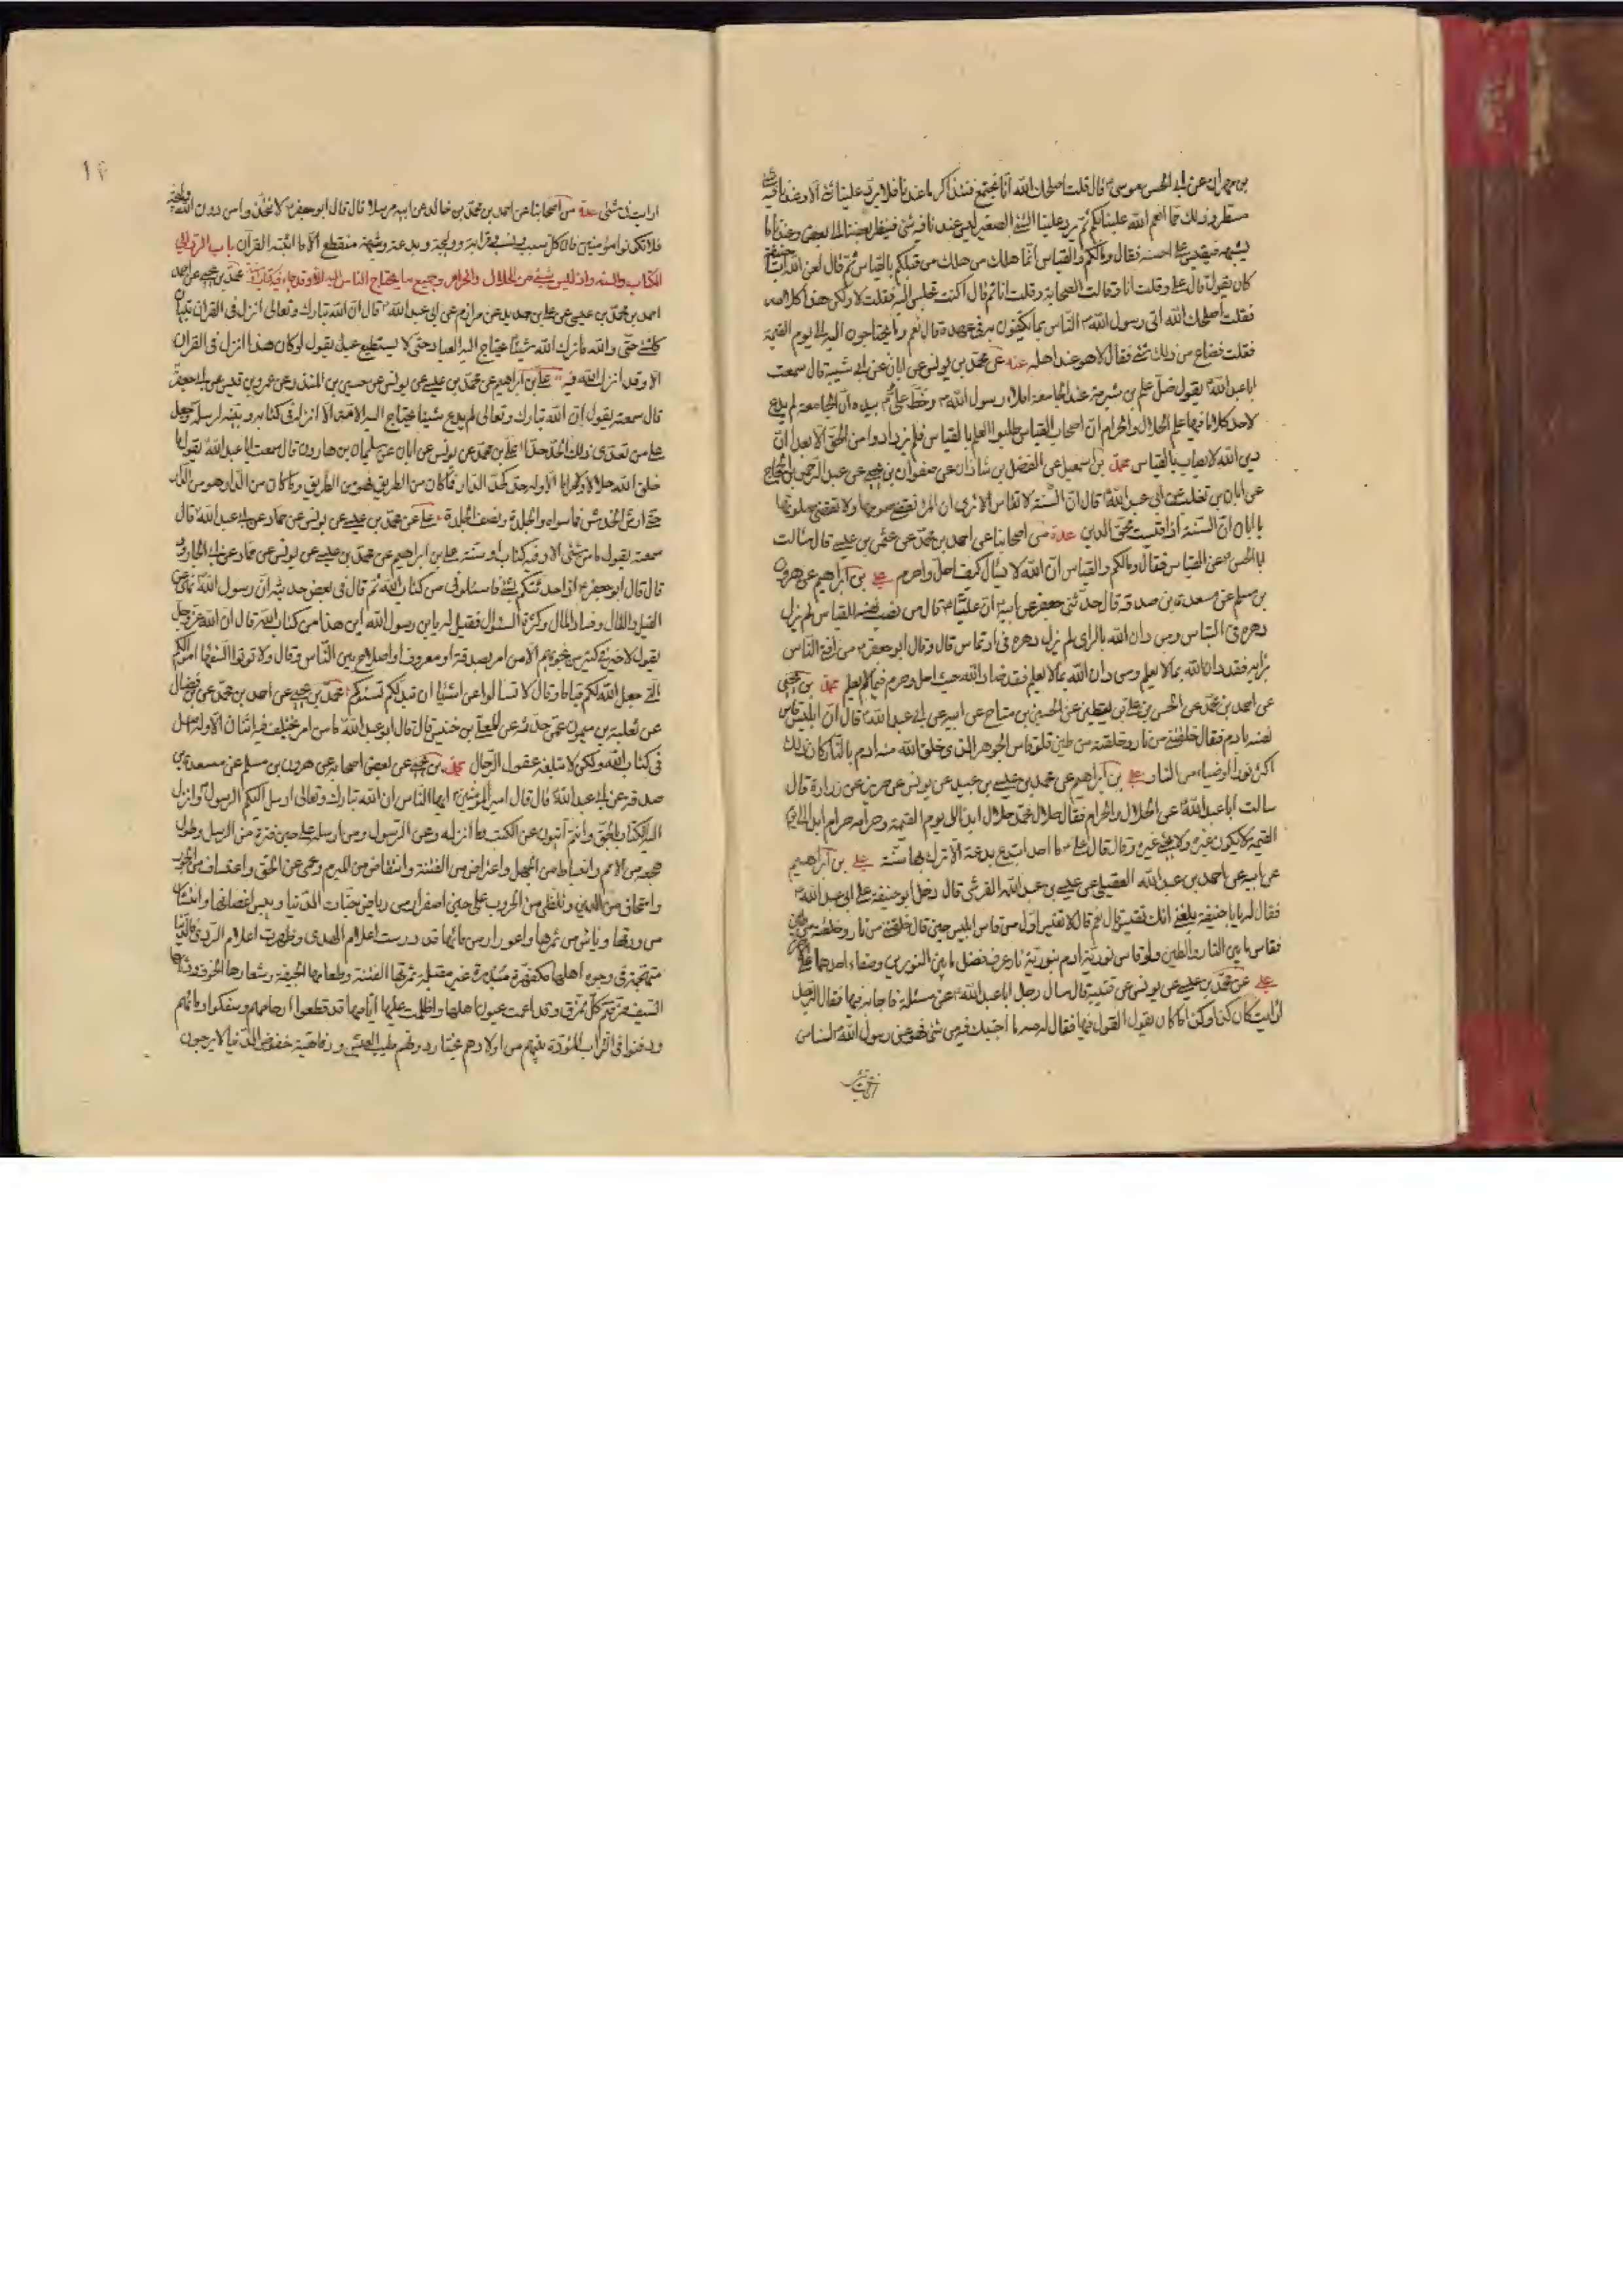 بن مهران عن ابى الحسن موسى ع قال قلت اصلحك الله انا نجتمع فنتذاكر ما عندنا فلا يرد علينا شئ الا وعندنا فيه
مسطر وذلك مما انعم الله علينا بكم ثم يرد علينا الشئ الصغير ليس عندنا فيه شئ فينظر بعضنا الى بعض وعندنا ما
يشبهه فنقيس على احسنه فقال وما لكم والقياس انما هلك من هلك من قبلكم بالقياس ثم قال لعن الله ابا حنيفة
كان يقول قال على وقلت انا وقالت الصحابة وقلت انا ثم قال اكنت تجلس اليه فقلت لا ولكن هذا كلامه
فقلت اصلحك الله اتى رسول الله ص الناس بما يكتفون به فى عهده قال نعم وما يحتاجون اليه الى يوم القيمة
فقلت فضاع من ذلك شئ فقال لا هو عند اهله عنه عن محمد بن يونس عن ابان عن ابى شيبة قال سمعت
ابا عبد الله ع يقول ضل علم بن شبرمة عند الجامعة املاء رسول الله ص وخط على ع بيده ان الجامعة لم يدع
لاحد كلاما فيها علم الحلال والحرام ان اصحاب القياس طلبوا العلم بالقياس فلم يزدادوا من الحق الا بعدا ان
دين الله لا يصاب بالقياس محمد بن اسمعيل عن الفضل بن شاذان عن صفوان بن يحيى عن عبد الرحمن بن الحجاج
عن ابان بن تغلب عن ابى عبد الله ع قال ان السنة لا تقاس الا ترى ان المراة تقضى صومها ولا تقضى صلوتها
يا ابان ان السنة اذا قيست محق الدين عدة من اصحابنا عن احمد بن محمد عن عثمن بن عيسى قال سالت
ابا الحسن ع عن القياس فقال وما لكم والقياس ان الله لا يسال كيف احل وكيف احرم على بن ابراهيم عن هرون
بن مسلم عن مسعدة بن صدقة قال حدثنى جعفر عن ابيه ان عليا ع قال من نصب نفسه للقياس لم يزل
دهره فى التباس ومن دان الله بالراى لم يزل دهره فى ارتماس قال وقال ابو جعفر ع من افتى الناس
برايه فقد دان الله بما لا يعلم ومن دان الله بما لا يعلم فقد ضاد الله حيث احل وحرم فيما لا يعلم محمد بن يحيى
عن احمد بن محمد عن الحسن بن على بن يقطين عن الحسين بن مياح عن ابيه عن ابى عبد الله ع قال ان ابليس قاس
نفسه بادم فقال خلقتنى من نار وخلقته من طين فلو قاس الجوهر الذى خلق الله منه ادم بالنار كان ذلك
اكثر نورا وضياء من النار على بن ابراهيم عن محمد بن عيسى بن عبيد عن يونس عن حريز عن زرارة قال
سالت ابا عبد الله ع عن الحلال والحرام فقال حلال محمد حلال ابدا الى يوم القيمة وحرامه حرام ابدا الى يوم
القيمة لا يكون غيره ولا يجئ غيره وقال قال على ع ما احد ابتدع بدعة الا ترك بها سنة على بن ابراهيم
عن ابيه عن احمد بن عبد الله العقيلى عن عيسى بن عبد الله القرشى قال دخل ابو حنيفة على ابى عبد الله ع
فقال له يا با حنيفة بلغنى انك تقيس قال نعم قال لا تقس فان اول من قاس ابليس حين قال خلقتنى من نار وخلقته من طين
فقاس ما بين النار والطين ولو قاس نورية ادم بنورية النار عرف فضل ما بين النورين وصفاء احدهما على الاخر
على عن محمد بن عيسى عن يونس عن قتيبة قال سال رجل ابا عبد الله ع عن مسئلة فاجابه فيها فقال الرجل
ارايت ان كان كذا وكذا ما كان يقول القول فيها فقال له مه ما اجبتك فيه من شئ فهو عن رسول الله ص لسنا من
ارايت فى شئ عدة من اصحابنا عن احمد بن محمد بن خالد عن ابيه مرسلا قال قال ابو جعفر ع لا تتخذوا من دون الله وليجة
فلا تكونوا مؤمنين فان كل سبب ونسب وقرابة ووليجة وبدعة وشبهة منقطع الا ما اثبته القرآن باب الرد الى
الكتاب والسنة وانه ليس شئ من الحلال والحرام وجميع ما يحتاج الناس اليه الا وقد جاء فيه كتاب او سنة محمد بن يحيى عن
احمد بن محمد بن عيسى عن على بن حديد عن مرازم عن ابى عبد الله ع قال ان الله تبارك وتعالى انزل فى القرآن تبيان
كل شئ حتى والله ما ترك الله شيئا يحتاج اليه العباد حتى لا يستطيع عبد يقول لو كان هذا انزل فى القرآن
الا وقد انزل الله فيه على بن ابراهيم عن محمد بن عيسى عن يونس عن حسين بن المنذر عن عمرو بن قيس عن ابى جعفر ع
قال سمعته يقول ان الله تبارك وتعالى لم يدع شيئا يحتاج اليه الامة الا انزله فى كتابه وبينه لرسله وجعل
على من تعدى ذلك الحد حدا على بن محمد عن يونس عن ابان عن سليمان بن هارون قال سمعت ابا عبد الله ع يقول ما
خلق الله حلالا ولا حراما الا وله حد كحد الدار فما كان من الطريق فهو من الطريق وما كان من الدار فهو من الدار
حتى ارش الخدش فما سواه والجلدة ونصف الجلدة على عن محمد بن عيسى عن يونس عن حماد عن ابى عبد الله ع قال
سمعته يقول ما من شئ الا وفيه كتاب او سنة على بن ابراهيم عن محمد بن عيسى عن يونس عن حماد عن ابى الجارود
قال قال ابو جعفر ع اذا حدثتكم بشئ فاسئلونى من كتاب الله ثم قال فى بعض حديثه ان رسول الله ص نهى عن
القيل والقال وفساد المال وكثرة السؤال فقيل له يا بن رسول الله اين هذا من كتاب الله قال ان الله عز وجل
يقول لا خير فى كثير من نجويهم الا من امر بصدقة او معروف او اصلاح بين الناس وقال ولا تؤتوا السفهاء اموالكم
التى جعل الله لكم قياما وقال لا تسالوا عن اشياء ان تبد لكم تسؤكم محمد بن يحيى عن احمد بن محمد عن بن فضال
عن ثعلبة بن ميمون عمن حدثه عن المعلى بن خنيس قال قال ابو عبد الله ع ما من امر يختلف فيه اثنان الا وله اصل
فى كتاب الله ولكن لا تبلغه عقول الرجال محمد بن يحيى عن بعض اصحابه عن هرون بن مسلم عن مسعدة بن
صدقة عن ابى عبد الله ع قال قال امير المؤمنين ع ايها الناس ان الله تبارك وتعالى ارسل اليكم الرسول ص وانزل
اليه الكتاب بالحق وانتم اميون عن الكتب وما انزله وعن الرسول ومن ارسله على حين فترة من الرسل وطول
هجعة من الامم وانبساط من الجهل واعتراض من الفتنة وانتقاض من المبرم وعمى عن الحق واعتساف من الجور
وامتحاق من الدين وتلظى من الحروب على حين اصفرار من رياض جنات الدنيا ويبس من اغصانها وانتشار
من ورقها وياس من ثمرها واغورار من مائها قد درست اعلام الهدى وظهرت اعلام الردى فالدنيا
متهجمة فى وجوه اهلها مكفهرة مدبرة غير مقبلة ثمرتها الفتنة وطعامها الجيفة وشعارها الخوف ودثارها
السيف مزقتم كل ممزق وقد اعمت عيون اهلها واظلمت عليها ايامها قد قطعوا ارحامهم وسفكوا دمائهم
ودفنوا فى التراب الموؤدة بينهم من اولادهم يجتاز دونهم طيب العيش ورفاهية خفوض الدنيا لا يرجون